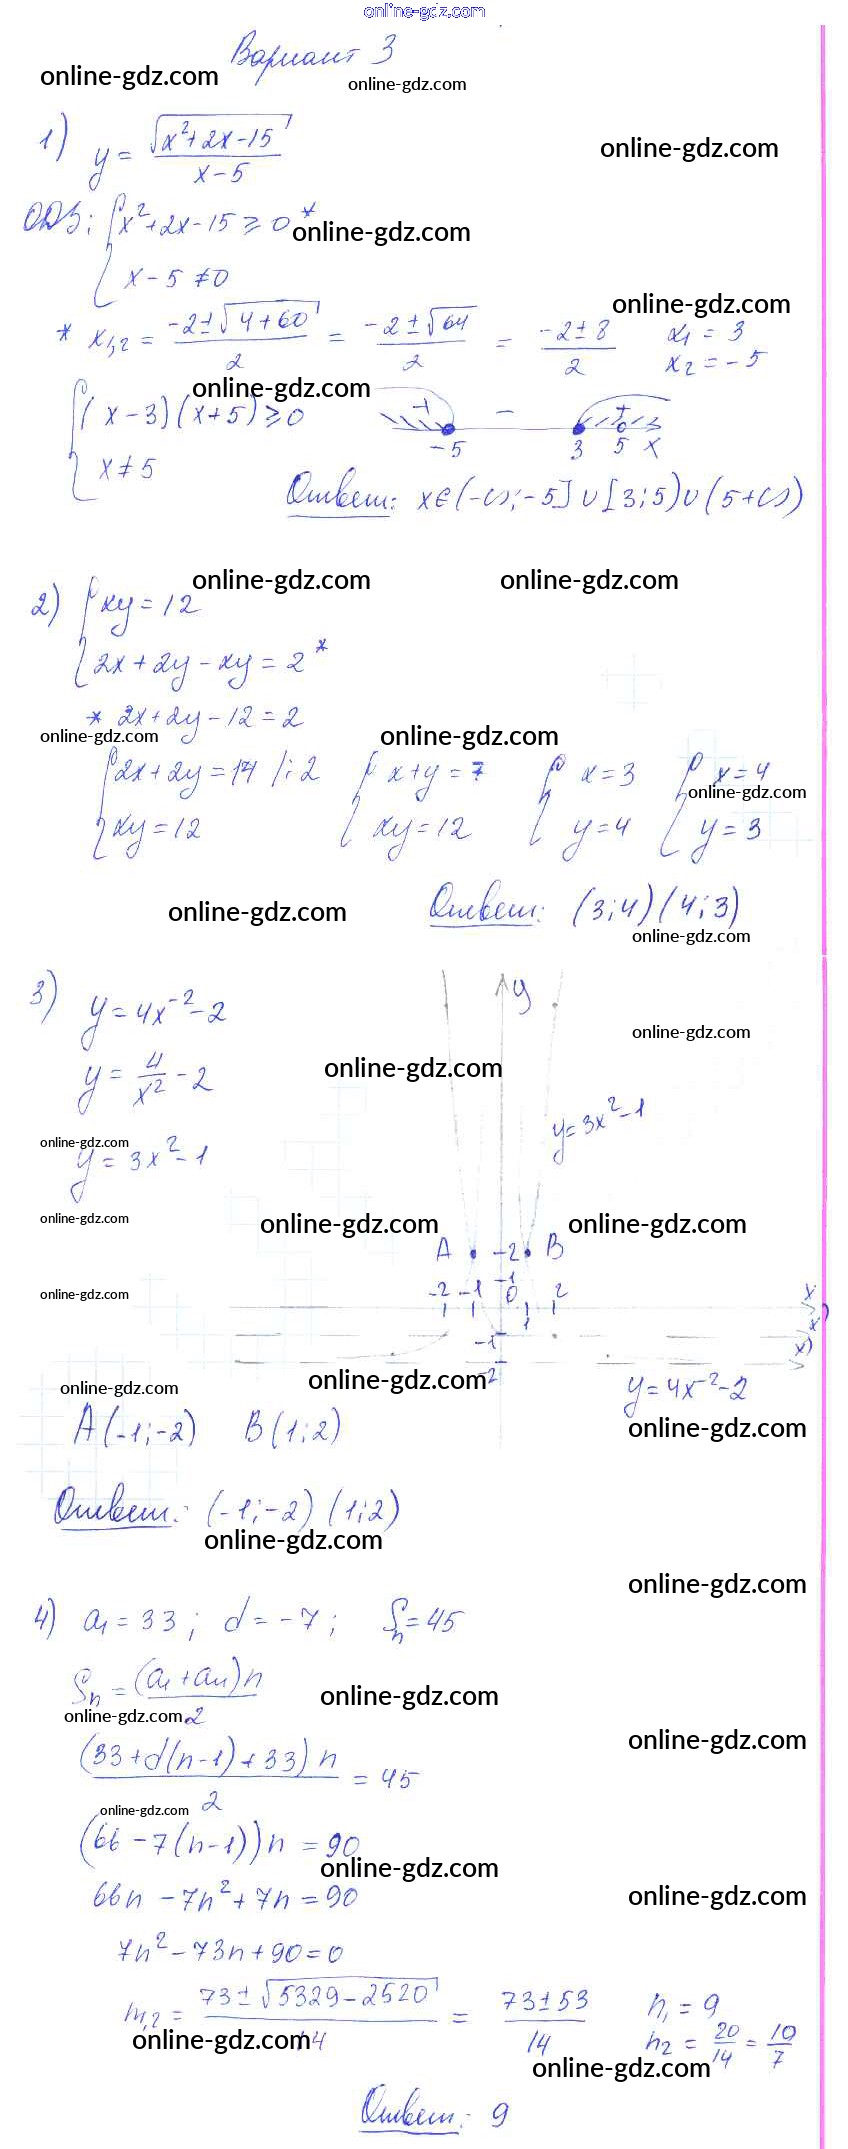 online-gdz.com
Вариант 3
online-gdz.com online-gdz.com
1) y = √(x²+2x-15) / (x-5)
online-gdz.com
ОДЗ: { x²+2x-15 ≥ 0 *
online-gdz.com
x - 5 ≠ 0
online-gdz.com
* x₁,₂ = (-2±√(4+60)) / 2 = (-2±√64) / 2 = (-2±8) / 2 x₁ = 3
x₂ = -5
online-gdz.com
{ (x-3)(x+5) ≥ 0
x ≠ 5
+ - +
-5 3 5 x
Ответ: x∈(-∞;-5]∪[3;5)∪(5+∞)
online-gdz.com online-gdz.com
2) { xy = 12
2x+2y-xy = 2 *
* 2x+2y-12 = 2
online-gdz.com online-gdz.com
{ 2x+2y = 14 /:2 { x+y = 7 { x = 3 { x = 4
online-gdz.com
xy = 12 xy = 12 y = 4 y = 3
online-gdz.com
Ответ: (3;4)(4;3)
online-gdz.com
3) y = 4x⁻²-2
y
online-gdz.com
y = 4/x² - 2
online-gdz.com
y = 3x²-1
online-gdz.com
y = 3x²-1
online-gdz.com
online-gdz.com online-gdz.com
A -2 B
-2 -1 -1 0 1 2 x
online-gdz.com
x
-1 x)
-2
online-gdz.com online-gdz.com
y = 4x⁻²-2
A(-1;-2) B(1;2)
online-gdz.com
Ответ: (-1;-2) (1;2)
online-gdz.com
online-gdz.com
4) a₁ = 33; d = -7; Sₙ = 45
Sₙ = (a₁+aₙ)n / 2
online-gdz.com
online-gdz.com
online-gdz.com
(33+d(n-1)+33)n / 2 = 45
online-gdz.com
(66-7(n-1))n = 90
online-gdz.com
66n - 7n²+7n = 90
online-gdz.com
7n²-73n+90=0
n₁,₂ = (73±√(5329-2520)) / 14 = (73±53) / 14 n₁ = 9
n₂ = 20/14 = 10/7
online-gdz.com
online-gdz.com
Ответ: 9